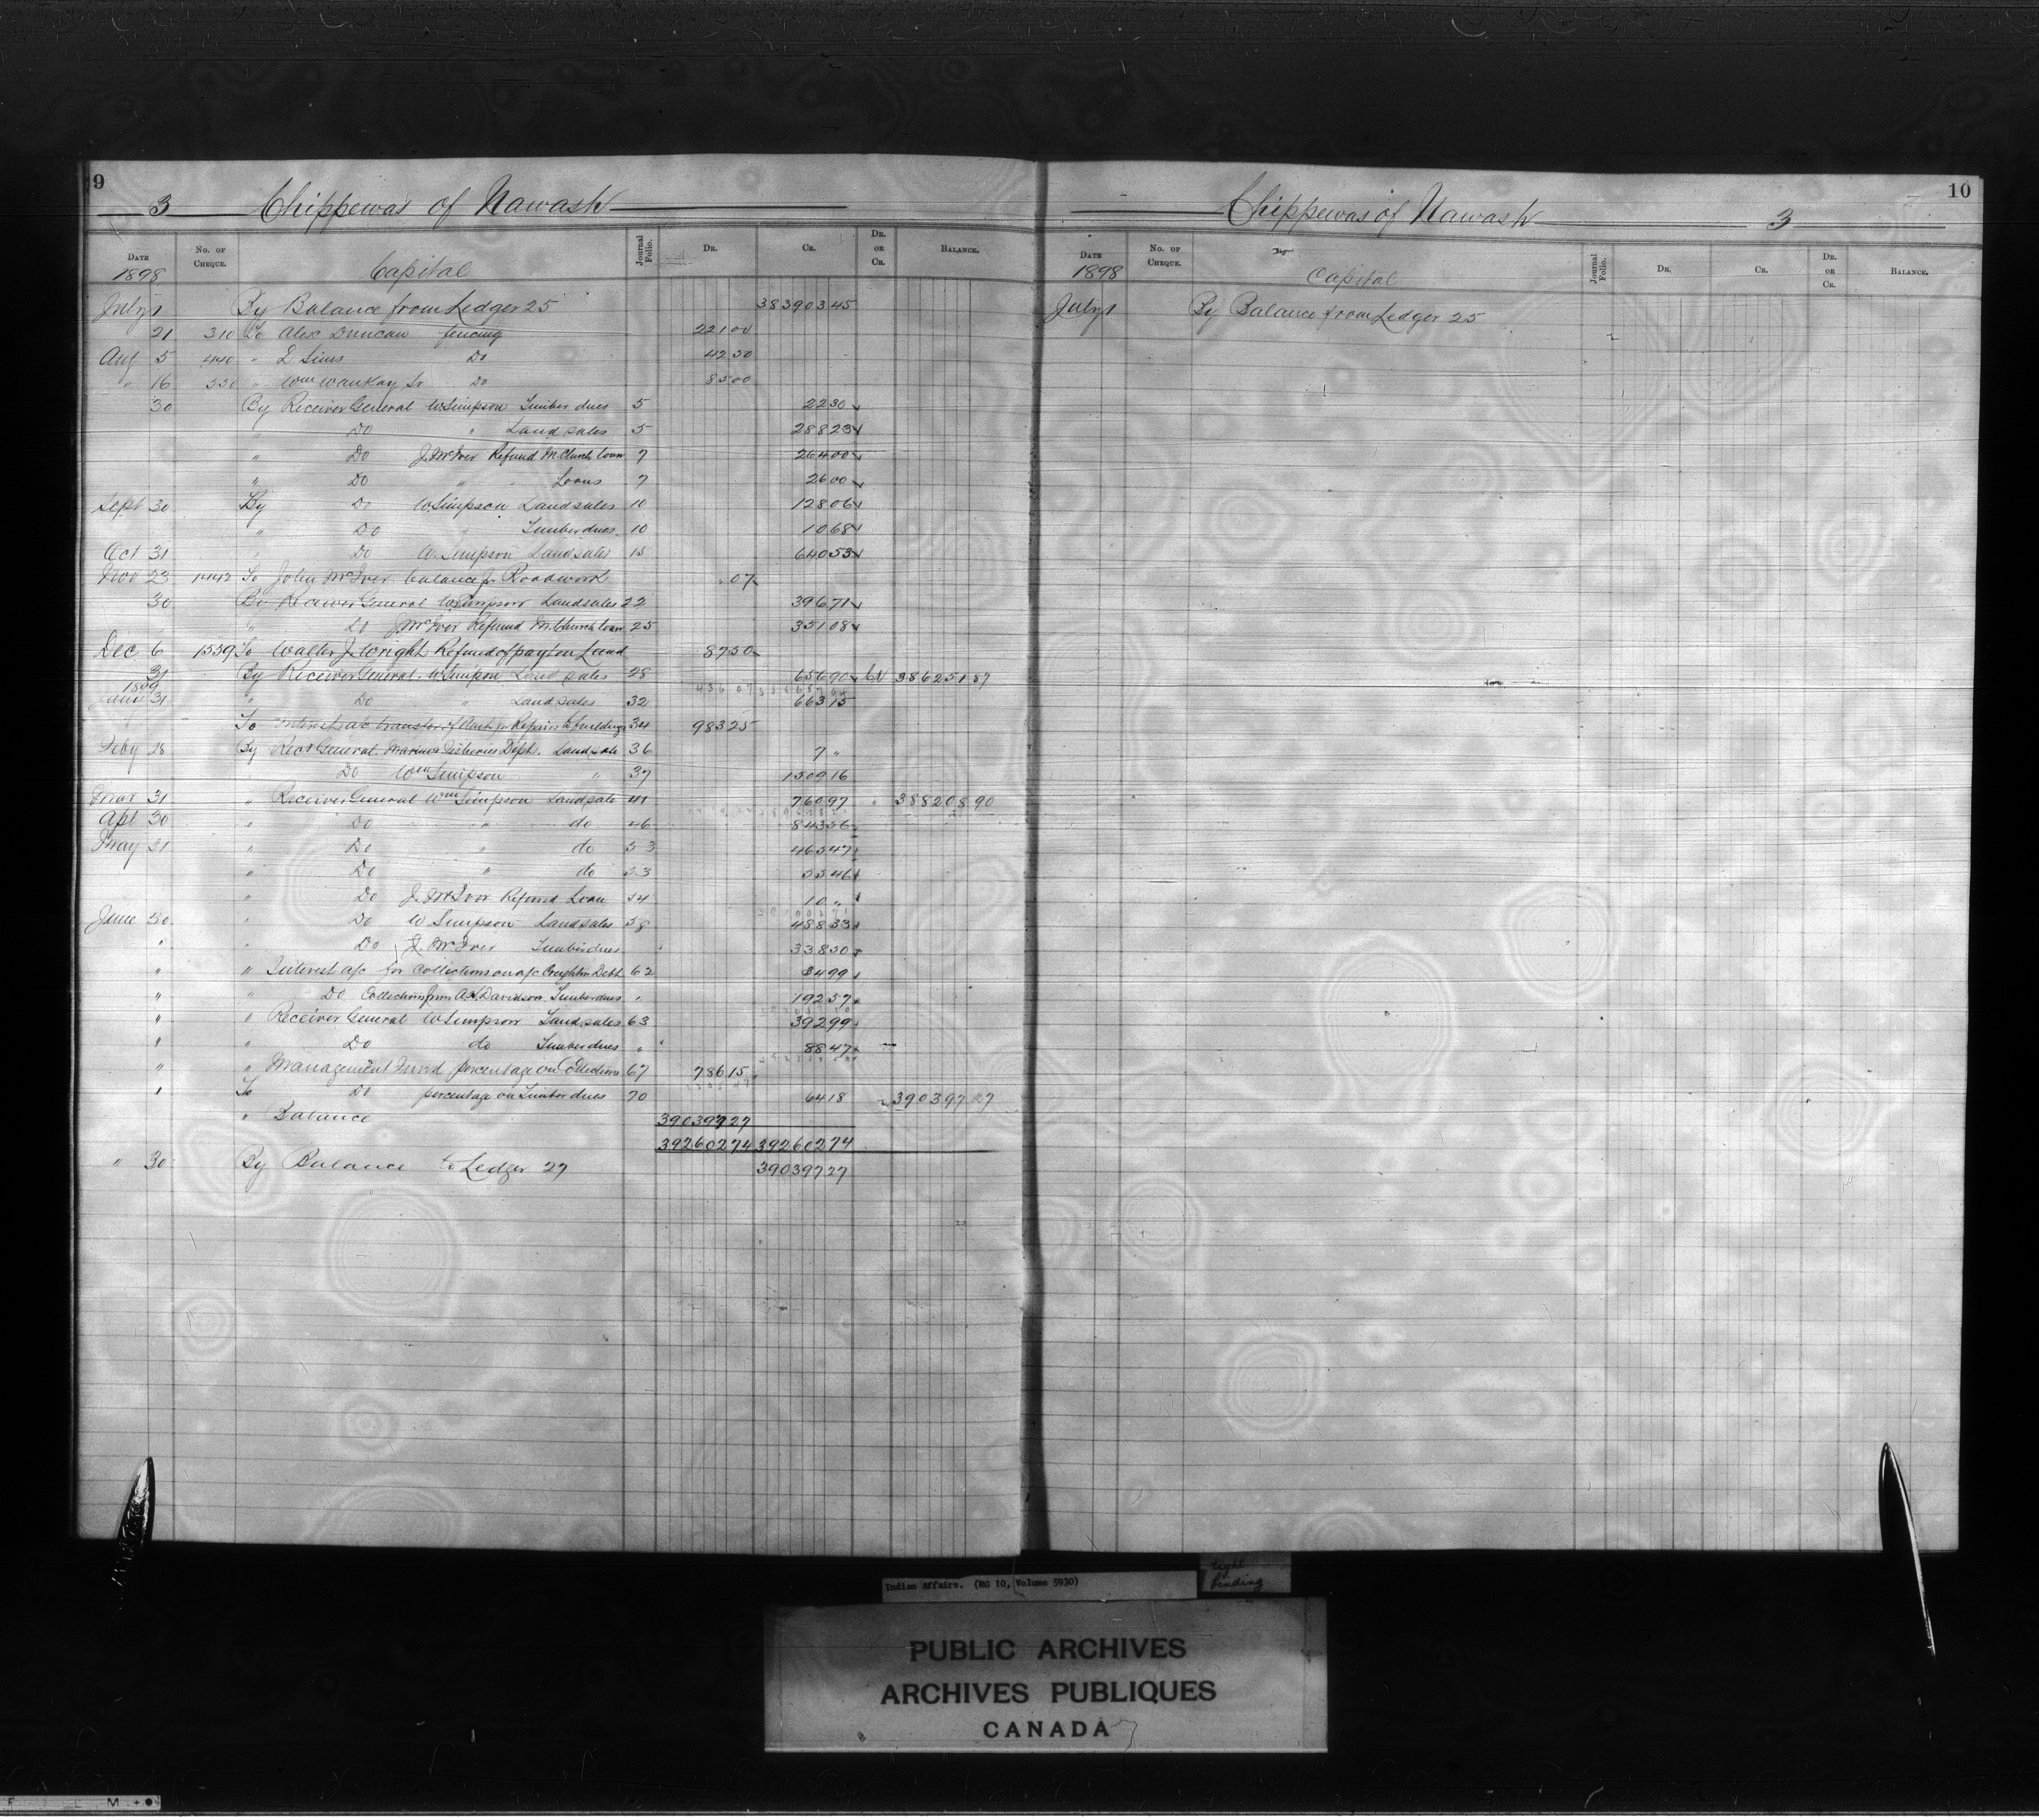 9
3 Chippewas of Nawash
Date No. of Cheque. Capital Journal Folio. Dr. Cr. Dr. or Cr. Balance.
1898
July 1 By Balance from Ledger 25 383903 45
21 310 To Alex Duncan fencing 221 00
Aug 5 440 " D Sims Do 42 50
" 16 530 " Wm Waukay Sr Do 85 00
30 By Receiver General W Simpson Timber dues 5 22 30
" Do " Land sales 5 288 23
" Do J. McIver Refund M. Church loan 7 264 00
" Do " Loans 7 26 00
Sept 30 By Do W Simpson Land sales 10 128 06
" Do " Timber dues 10 10 68
Oct 31 " Do W. Simpson Land sales 15 640 53
Nov 23 1442 To John McIver balance for Roadwork 07
30 By Receiver General W Simpson Land sales 22 396 71
" Do J McIver Refund M. Church loan 25 351 08
Dec 6 1559 To Walter J. Wright Refund of pay't on Land 87 50
31 By Receiver General W Simpson Land sales 28 656 90 Cr 386251 87
1899
Jany 31 " Do " Land sales 32 663 15
To Interest a/c transfer of Auth for Repairs to buildings 34 983 25
Feby 28 By Recr General Marine & Fisheries Dept. Land sale 36 7 "
Do Wm Simpson " 37 1509 16
Mar 31 " Receiver General Wm Simpson Land sale 41 760 97 " 388208 90
Apl 30 " Do " do 46 843 56
May 31 " Do " do 53 465 47
" Do " do 53 55 46
" Do J. McIvor Refund Loan 54 10 "
June 30 " Do W Simpson Land sales 58 488 33
" " Do J. McIver Timber dues " 338 50
" " Interest a/c for Collections on a/c Creighton Debt 62 34 99
" " Do Collections from A. H. Davidson Timber dues " 192 57
" " Receiver General W Simpson Land sales 63 392 99
" " Do do Timber dues " 88 47
" " Management Fund percentage on Collections 67 786 15
" To Do percentage on Timber dues 70 64 18 " 390397 27
" Balance 390397 27
392602 74 392602 74
" 30 By Balance to Ledger 27 390397 27
10
Chippewas of Nawash 3
Date No. of Cheque. Capital Journal Folio. Dr. Cr. Dr. or Cr. Balance.
1898
July 1 By Balance from Ledger 25
Indian Affairs. (RG 10, Volume 5930)
tight binding
PUBLIC ARCHIVES
ARCHIVES PUBLIQUES
CANADA
F I L M